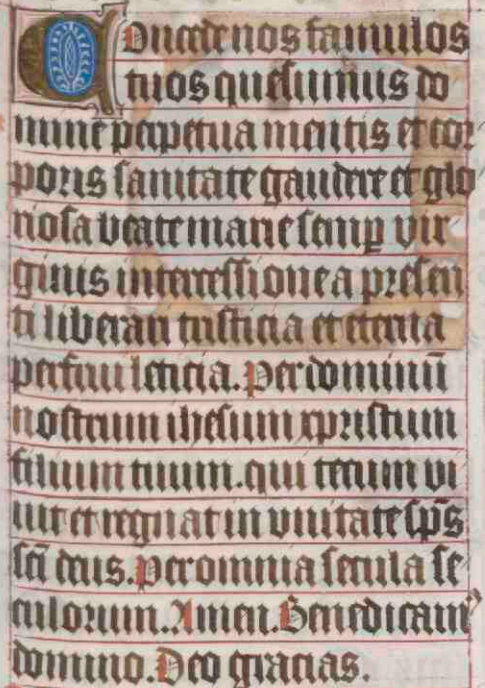 Concede nos famulos
tuos quesumus do
mine perpetua mentis et cor
poris sanitate gaudere et glo
riosa beate marie semper vir
ginis intercessione a presen
ti liberari tristicia et eterna
perfrui leticia. Per dominū
nostrum ihesum xpristum
filium tuum. qui tecum vi
uit et regnat in vnitate sp̄s
sc̄i deus. Per omnia secula se
culorum. Amen. Benedicam9
domino. Deo gracias.